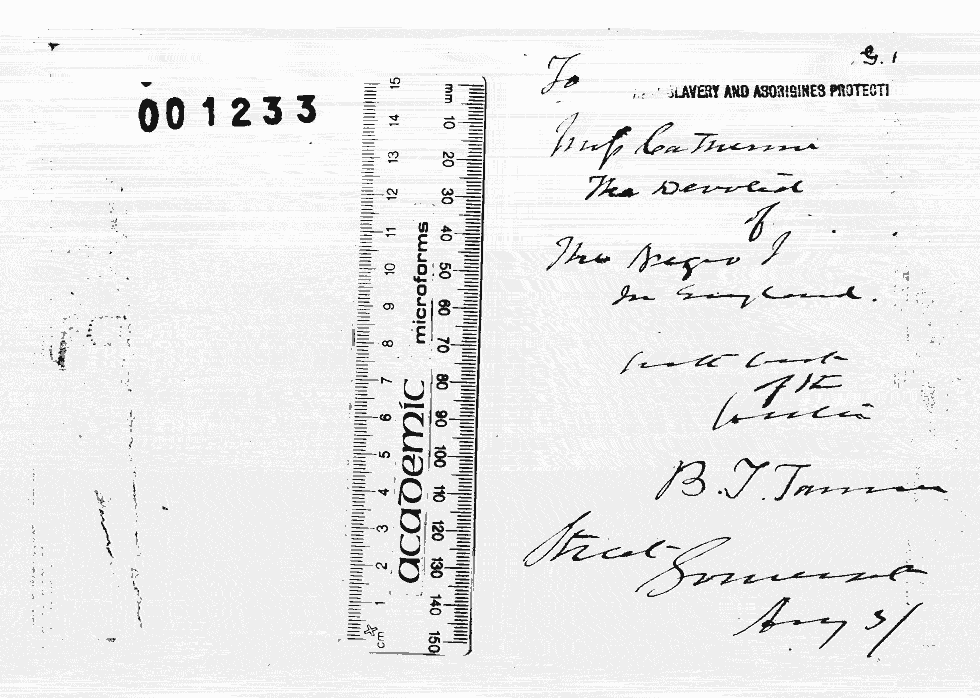 001233
15
14
13
12
11
10
9
8
7
6
5
4
3
2
1
cm
mm
10
20
30
40
50
60
70
80
90
100
110
120
130
140
150
academic microforms
G. 1
To
SLAVERY AND ABORIGINES PROTECTI
Miss Catherine
The Devoted
of
The Negro
In England.
of the
B. T. Tanner
Street Somerset
Aug 31